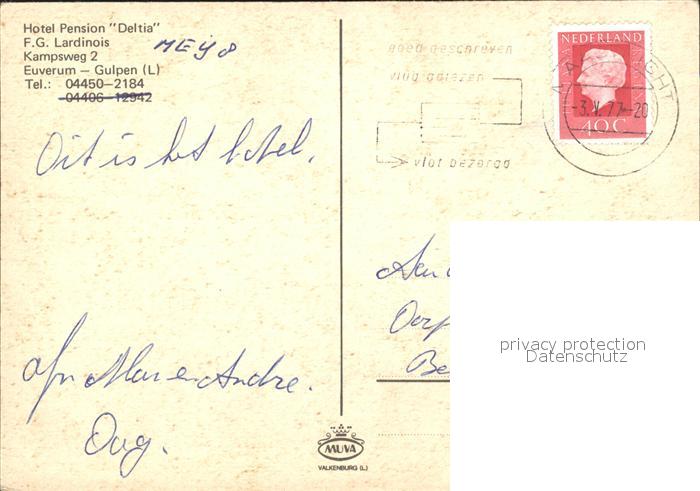 Hotel Pension "Deltia"
F.G. Lardinois
Kampsweg 2
Euverum – Gulpen (L)
Tel.: 04450–2184
04406-12942
MEY 8
Dit is het hotel.
Mar en Andre.
goed geschreven
vlug gelezen
vlot bezorgd
NEDERLAND
40C
-3.V.77-20
privacy protection
Datenschutz
MUVA
VALKENBURG (L.)